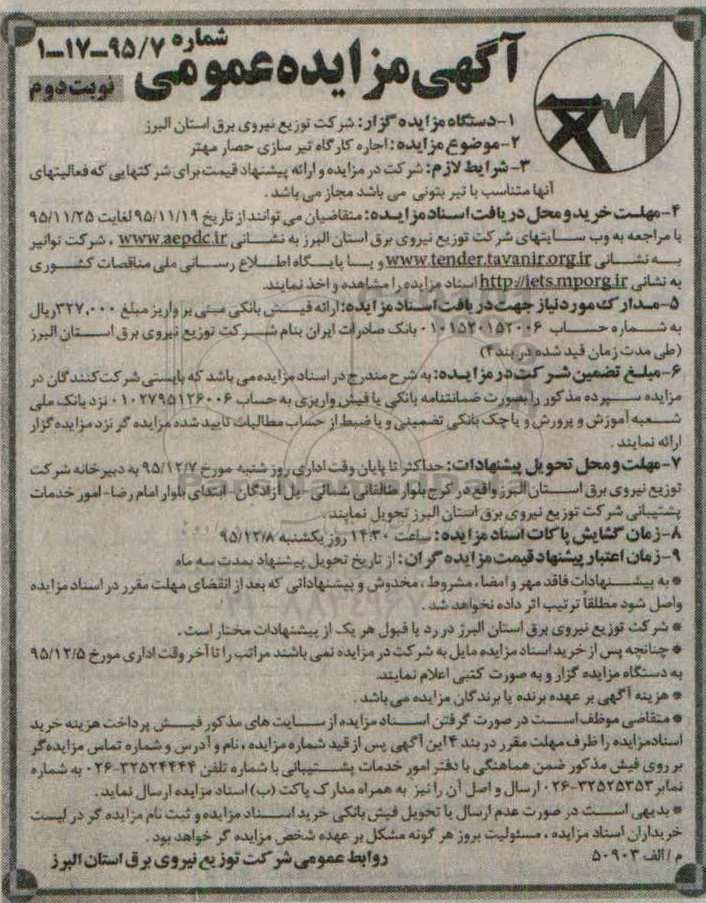 شماره ۹۵/۷-۱۷-۱
آگهی مزایده عمومی
نوبت دوم
۱-دستگاه مزایده گزار: شرکت توزیع نیروی برق استان البرز
۲-موضوع مزایده: اجاره کارگاه تیر سازی حصار مهتر
۳-شرایط لازم: شرکت در مزایده و ارائه پیشنهاد قیمت برای شرکتهایی که فعالیتهای
آنها متناسب با تیر بتونی می باشد مجاز می باشد.
۴-مهلت خرید و محل دریافت اسناد مزایده: متقاضیان می توانند از تاریخ ۹۵/۱۱/۱۹ لغایت ۹۵/۱۱/۲۵
با مراجعه به وب سایتهای شرکت توزیع نیروی برق استان البرز به نشانی www.aepdc.ir ، شرکت توانیر
به نشانی www.tender.tavanir.org.ir و یا پایگاه اطلاع رسانی ملی مناقصات کشوری
به نشانی http://iets.mporg.ir اسناد مزایده را مشاهده و اخذ نمایند.
۵-مدارک مورد نیاز جهت دریافت اسناد مزایده: ارائه فیش بانکی مبنی بر واریز مبلغ ۳۲۷,۰۰۰ ریال
به شماره حساب ۰۱۰۱۵۲۰۱۵۲۰۰۶ بانک صادرات ایران بنام شرکت توزیع نیروی برق استان البرز
(طی مدت زمان قید شده در بند ۴)
۶-مبلغ تضمین شرکت در مزایده: به شرح مندرج در اسناد مزایده می باشد که بایستی شرکت کنندگان در
مزایده سپرده مذکور را بصورت ضمانتنامه بانکی یا فیش واریزی به حساب ۰۱۰۲۷۹۵۱۲۶۰۰۶ نزد بانک ملی
شعبه آموزش و پرورش و یا چک بانکی تضمینی و یا ضبط از حساب مطالبات تایید شده مزایده گر نزد مزایده گزار
ارائه نمایند.
۷-مهلت و محل تحویل پیشنهادات: حداکثر تا پایان وقت اداری روز شنبه مورخ ۹۵/۱۲/۷ به دبیرخانه شرکت
توزیع نیروی برق استان البرز واقع در کرج بلوار طالقانی شمالی - پل آزادگان - ابتدای بلوار امام رضا - امور خدمات
پشتیبانی شرکت توزیع نیروی برق استان البرز تحویل نمایند.
۸-زمان گشایش پاکات اسناد مزایده: ساعت ۱۴:۳۰ روز یکشنبه ۹۵/۱۲/۸
۹-زمان اعتبار پیشنهاد قیمت مزایده گران: از تاریخ تحویل پیشنهاد بمدت سه ماه
* به پیشنهادات فاقد مهر و امضاء، مشروط، مخدوش و پیشنهاداتی که بعد از انقضای مهلت مقرر در اسناد مزایده
واصل شود مطلقاً ترتیب اثر داده نخواهد شد.
* شرکت توزیع نیروی برق استان البرز در رد یا قبول هر یک از پیشنهادات مختار است.
* چنانچه پس از خرید اسناد مزایده مایل به شرکت در مزایده نمی باشند مراتب را تا آخر وقت اداری مورخ ۹۵/۱۲/۵
به دستگاه مزایده گزار و به صورت کتبی اعلام نمایند.
* هزینه آگهی بر عهده برنده یا برندگان مزایده می باشد.
* متقاضی موظف است در صورت گرفتن اسناد مزایده از سایت های مذکور فیش پرداخت هزینه خرید
اسناد مزایده را ظرف مهلت مقرر در بند ۴ این آگهی پس از قید شماره مزایده، نام و آدرس و شماره تماس مزایده گر
بر روی فیش مذکور ضمن هماهنگی با دفتر امور خدمات پشتیبانی با شماره تلفن ۳۲۵۲۴۴۴۴-۰۲۶ به شماره
نمابر ۳۲۵۲۵۳۵۳-۰۲۶ ارسال و اصل آن را نیز به همراه مدارک پاکت (ب) اسناد مزایده ارسال نماید.
* بدیهی است در صورت عدم ارسال یا تحویل فیش بانکی خرید اسناد مزایده و ثبت نام مزایده گر در لیست
خریداران اسناد مزایده، مسئولیت بروز هر گونه مشکل بر عهده شخص مزایده گر خواهد بود.
م / الف ۵۰۹۰۳
روابط عمومی شرکت توزیع نیروی برق استان البرز